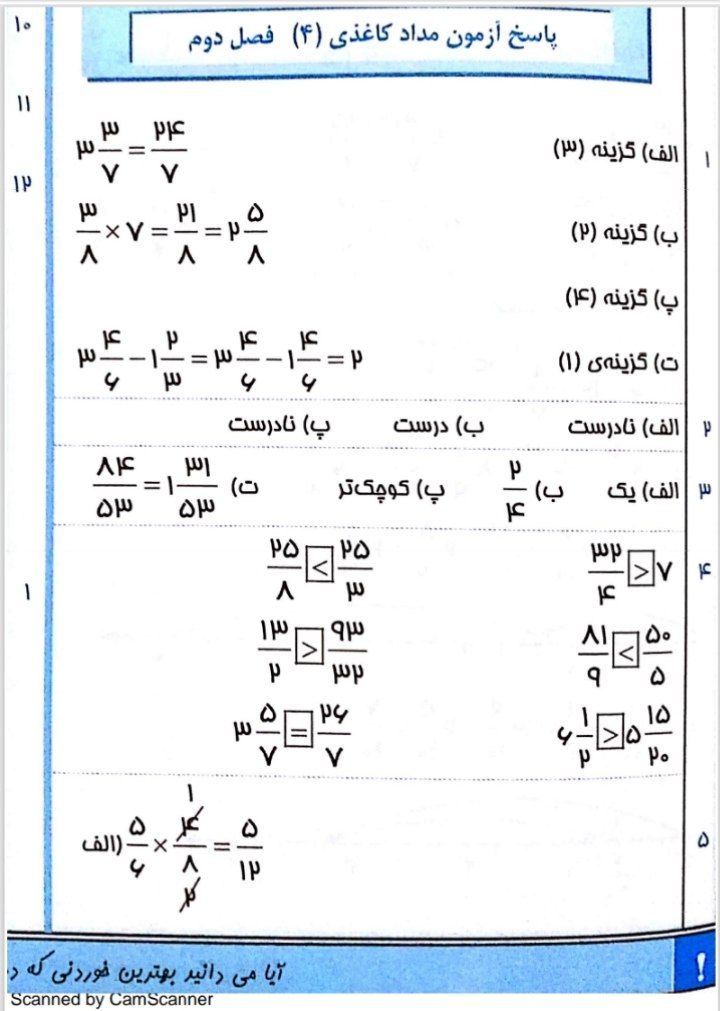 پاسخ آزمون مداد کاغذی (۴) فصل دوم
۱۰
۱۱
۱۲
۱
۱ الف) گزینه (۳) ۳ ۳/۷ = ۲۴/۷
ب) گزینه (۲) ۳/۸ × ۷ = ۲۱/۸ = ۲ ۵/۸
پ) گزینه (۴)
ت) گزینه‌ی (۱) ۳ ۴/۶ − ۱ ۲/۳ = ۳ ۴/۶ − ۱ ۴/۶ = ۲
۲ الف) نادرست ب) درست پ) نادرست
۳ الف) یک ب) ۲/۴ پ) کوچک‌تر ت) ۸۴/۵۳ = ۱ ۳۱/۵۳
۴ ۳۲/۴ > ۷ ۲۵/۸ < ۲۵/۳
۸۱/۹ < ۵۰/۵ ۱۳/۲ > ۹۳/۳۲
۶ ۱/۲ > ۵ ۱۵/۲۰ ۳ ۵/۷ = ۲۶/۷
۵ الف) ۵/۶ × ۴/۸ = ۵/۱۲
۱
۲
آیا می دانید بهترین خوردنی که
!
Scanned by CamScanner